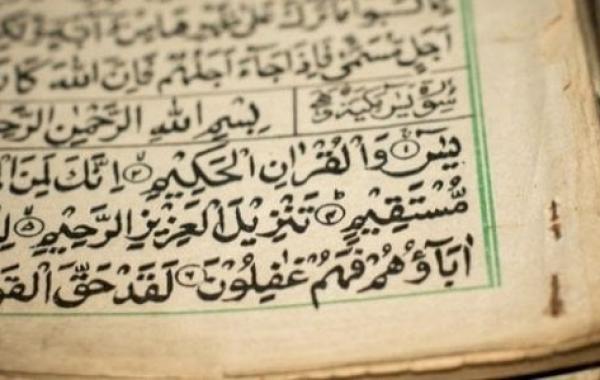 كَسَبُوْا مَا تَرَكَ عَلٰى ظَهْرِهَا مِنْ دَآبَّةٍ
اَجَلٍ مُّسَمًّى فَاِذَا جَآءَ اَجَلُهُمْ فَاِنَّ اللّٰهَ كَانَ
سُوْرَةُ يٰسٓ مَكِّيَّةٌ وَّهِيَ بِسْمِ اللّٰهِ الرَّحْمٰنِ الرَّحِ
يٰسٓ ۱ وَالْقُرْاٰنِ الْحَكِيْمِ ۲ اِنَّكَ لَمِنَ الْ
مُّسْتَقِيْمٍ ۴ تَنْزِيْلَ الْعَزِيْزِ الرَّحِيْمِ ۵
اٰبَآؤُهُمْ فَهُمْ غٰفِلُوْنَ ۶ لَقَدْ حَقَّ الْقَوْ